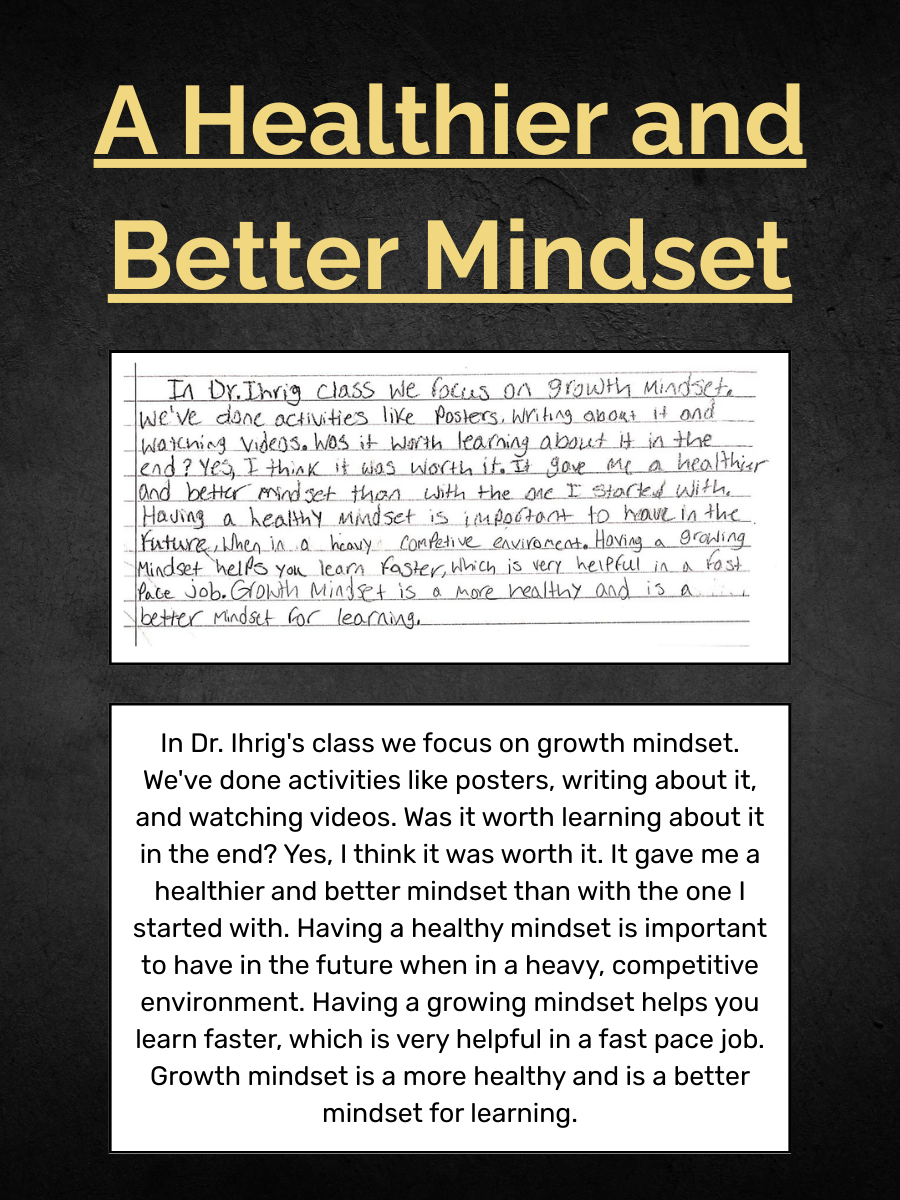 A Healthier and
Better Mindset
In Dr. Ihrig class we focus on growth mindset.
We've done activities like posters, writing about it and
watching videos. Was it worth learning about it in the
end? Yes, I think it was worth it. It gave me a healthier
and better mindset than with the one I started with.
Having a healthy mindset is important to have in the
future, when in a heavy competive enviroment. Having a growing
Mindset helps you learn faster, which is very helpful in a fast
pace job. Growth Mindset is a more healthy and is a
better mindset for learning.
In Dr. Ihrig's class we focus on growth mindset.
We've done activities like posters, writing about it,
and watching videos. Was it worth learning about it
in the end? Yes, I think it was worth it. It gave me a
healthier and better mindset than with the one I
started with. Having a healthy mindset is important
to have in the future when in a heavy, competitive
environment. Having a growing mindset helps you
learn faster, which is very helpful in a fast pace job.
Growth mindset is a more healthy and is a better
mindset for learning.